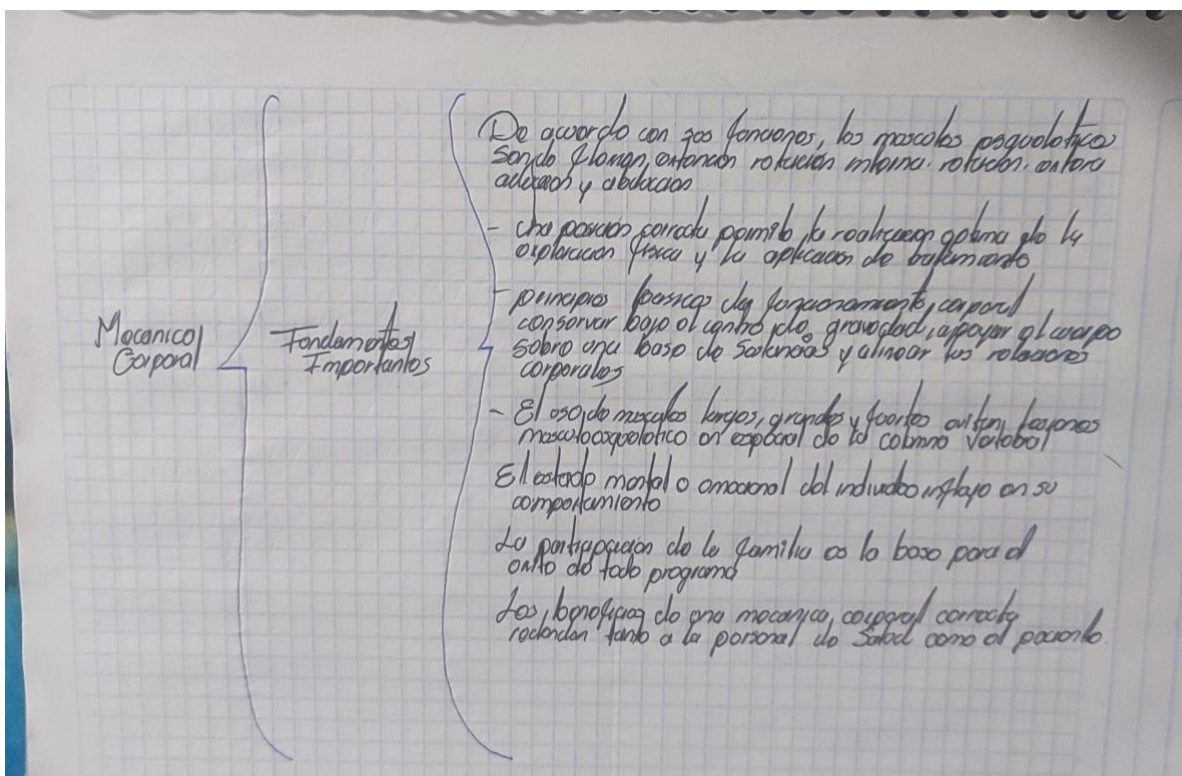 Mecanica
Corporal
Fundamentos
Importantes
De acuerdo con sus funciones, los musculos esqueleticos
Son de flexion, extension rotacion interna, rotacion, externa
aduccion y abduccion
- Una posicion correcta permite la realizacion optima de la
exploracion fisica y la aplicacion de tratamiento
- principios basicos del funcionamiento, corporal
conservar bajo el centro de, gravedad, apoyar el cuerpo
sobre una base de y alinear las
corporales
- El uso, de musculos largos, grandes y fuertes evitan, lesiones
musculoesqueletico en especial de la columna vertebral
El estado mental o emocional del individuo influye en su
comportamiento
La participacion de la familia es la base para el
exito de todo programa
Los, beneficios de una mecanica, corporal correcta
redundan tanto a la personal de Salud como al paciente.